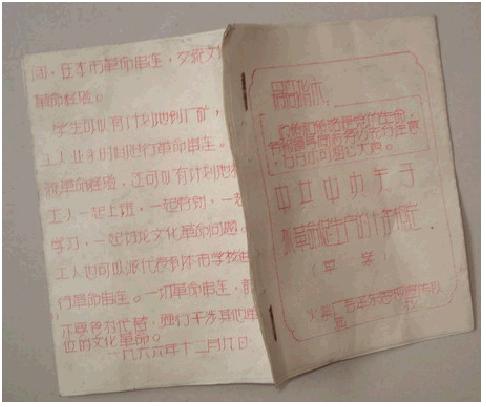 间，在本市革命串连，交流文
革命经验。
学生可以有计划地到厂矿，
工人业余时间进行革命串连。
流革命经验，还可以有计划地
工人一起上班，一起劳动，一起
学习，一起讨论文化革命问题。
工人也可以派代表到本市学校
行革命串连。一切革命串连，都
不要包办代替，
位的文化革命。
一九六六年十二月九日
最高指示
政策和策略是党的生命，
各级领导同志务必充分注意，
万万不可粗心大意。
中共中央关于
抓革命促生产的十条规定
（草案）